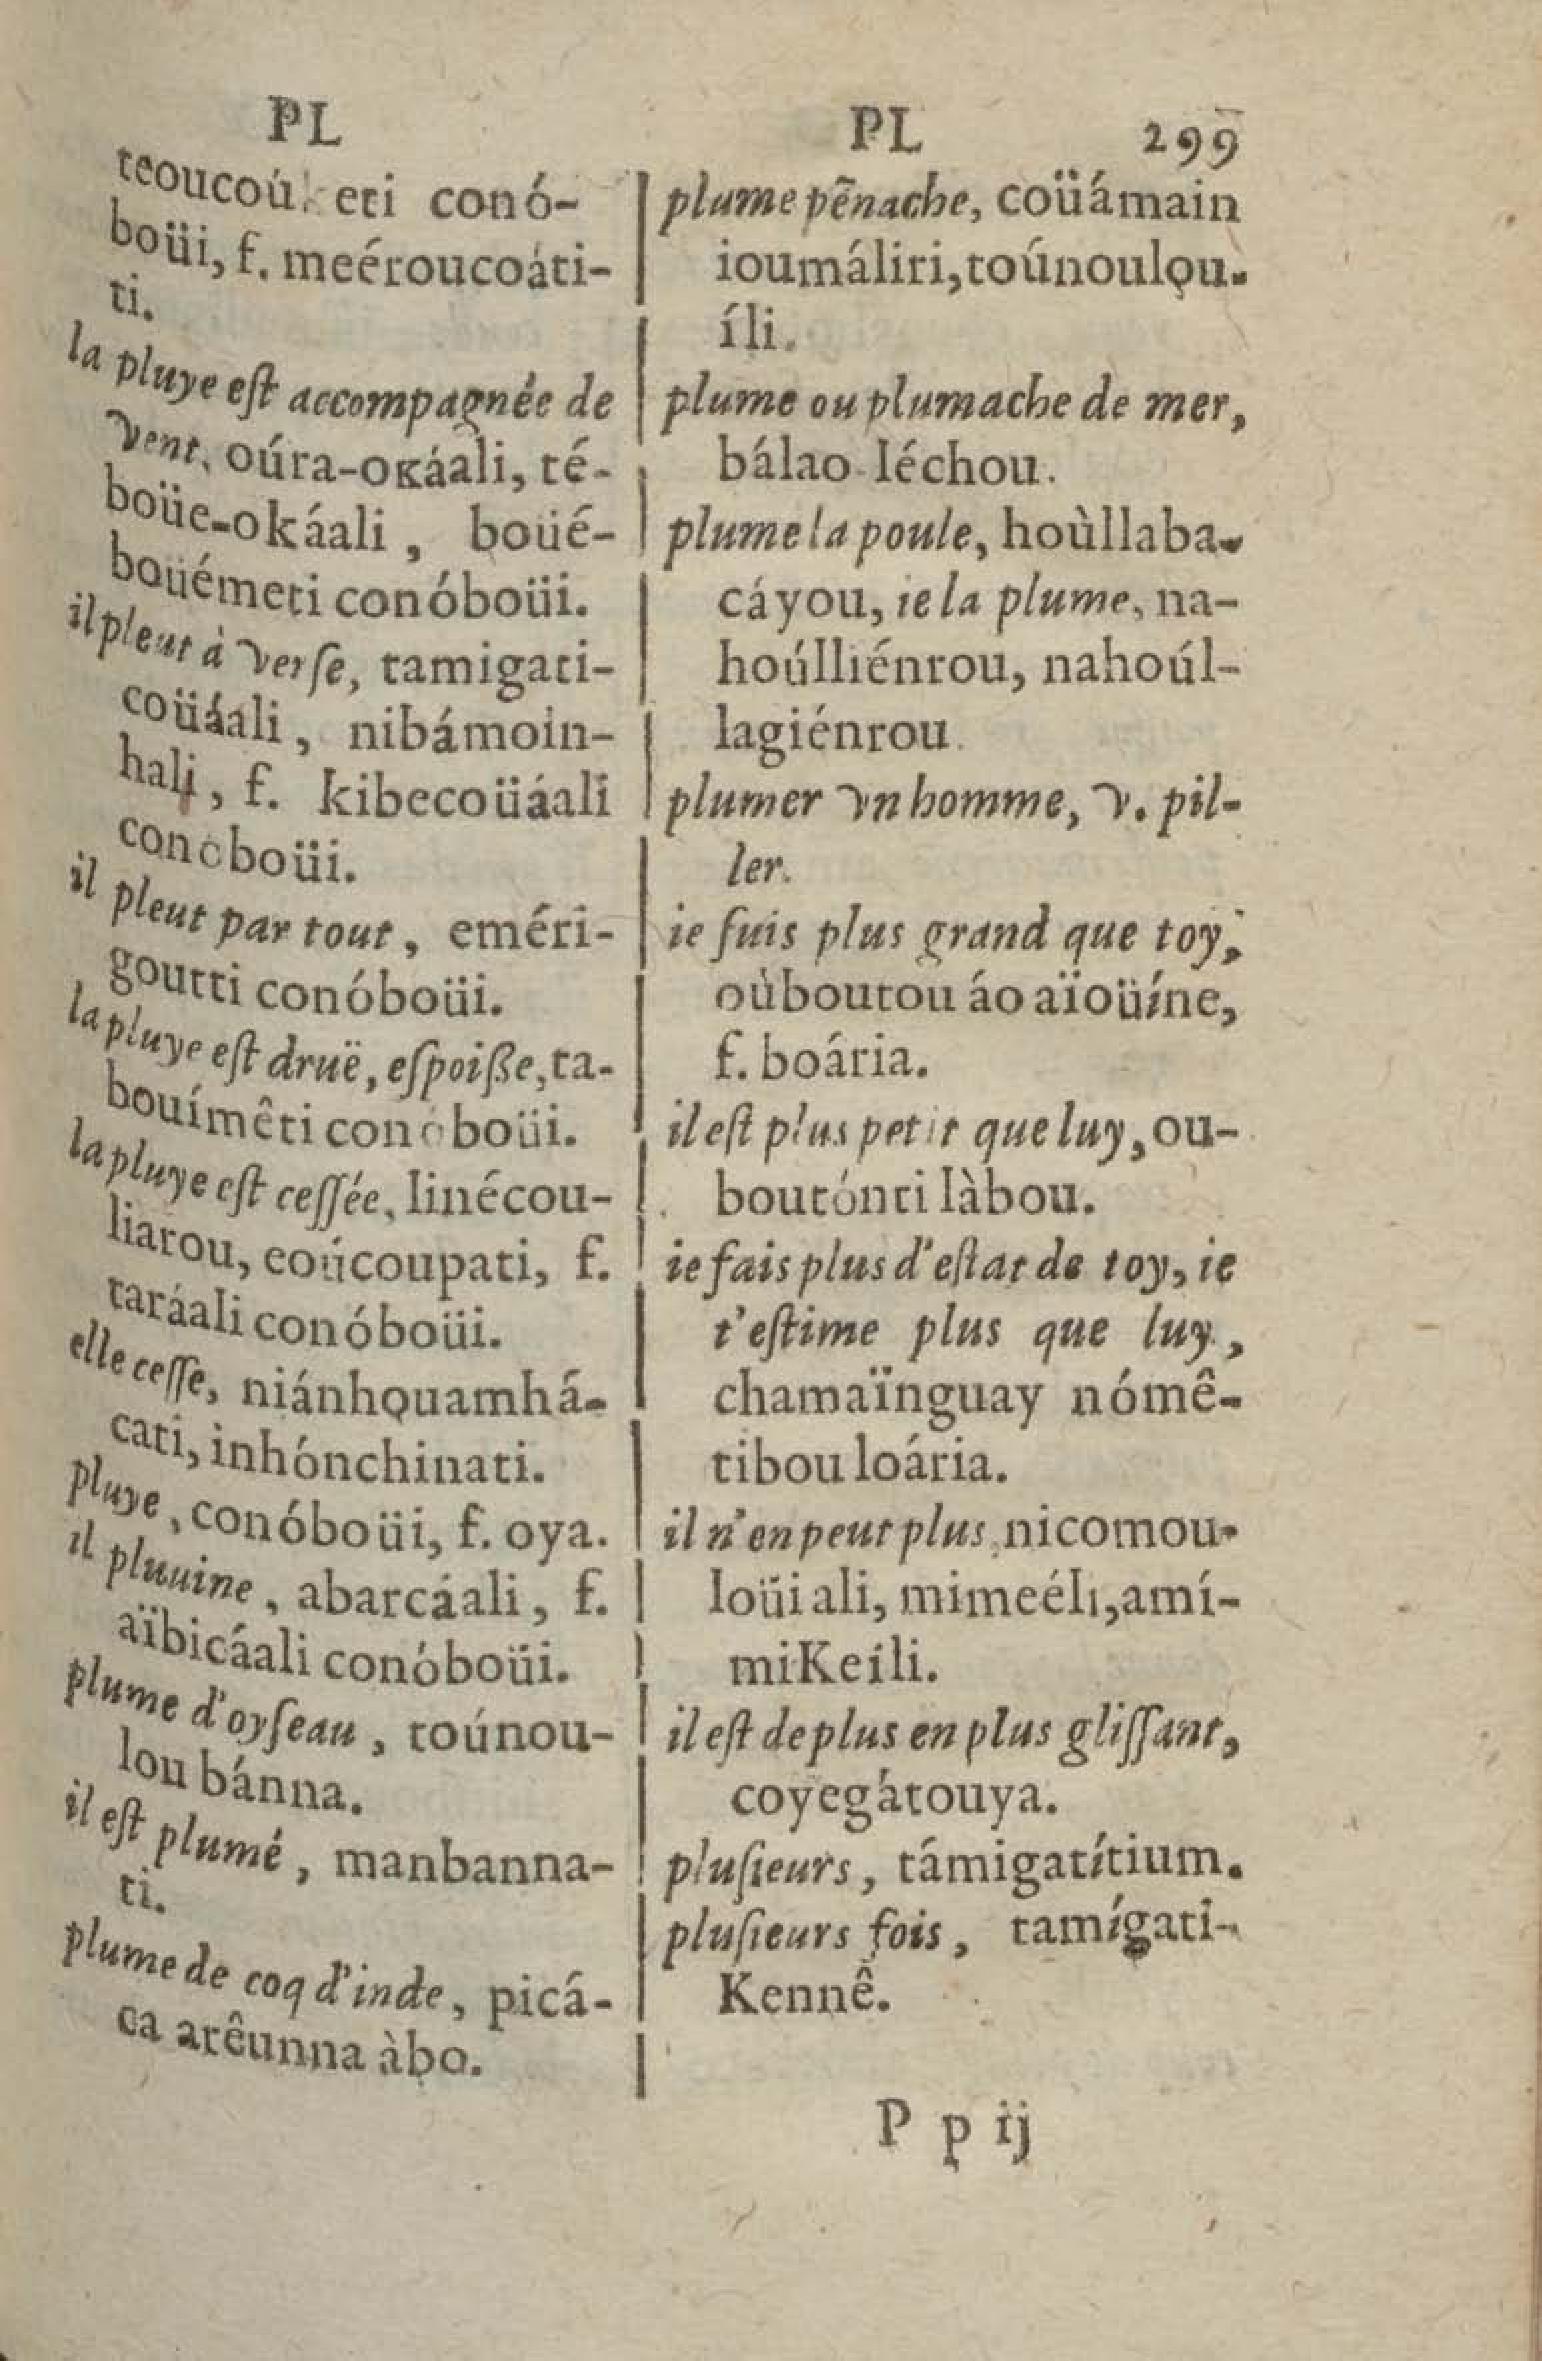 PL
teoucoú keti conó-
boüi, f. meéroucoáti-
ti.
la pluye eſt accompagnée de
vent, oúra-oĸáali, té-
boüe-okáali, boüé-
boüémeti conóboüi.
il pleut à verſe, tamigati-
coüáali, nibámoin-
hali, f. kibecoüáali
conoboüi.
il pleut par tout, eméri-
goutti conóboüi.
la pluye eſt druë, eſpoiſſe, ta-
bouímêti conóboüi.
la pluye eſt ceſſée, linécou-
liarou, eoúcoupati, f.
taráali conóboüi.
elle ceſſe, niánhouamhá-
cati, inhónchinati.
pluye, conóboüi, f. oya.
il pluuine, abarcáali, f.
aïbicáali conóboüi.
plume d'oyſeau, toúnou-
lou bánna.
il eſt plumé, manbanna-
ti.
plume de coq d'inde, picá-
ca arêunna àbo.
PL 299
plume pẽnache, coüámain
ioumáliri, toúnoulou-
íli.
plume ou plumache de mer,
bálao léchou.
plume la poule, hoùllaba-
cáyou, ie la plume, na-
hoúlliénrou, nahoúl-
lagiénrou.
plumer vn homme, v. pil-
ler.
ie ſuis plus grand que toy,
oùboutou áo aïoüíne,
f. boária.
il eſt plus petit que luy, ou-
boutónti làbou.
ie fais plus d'eſtat de toy, ie
t'eſtime plus que luy,
chamaïnguay nómê-
tibou loária.
il n'en peut plus, nicomou-
loüi ali, mimeéli, amí-
miKeíli.
il eſt de plus en plus gliſſant,
coyegátouya.
pluſieurs, támigatítium.
pluſieurs fois, tamígati-
Kennê.
P p ij